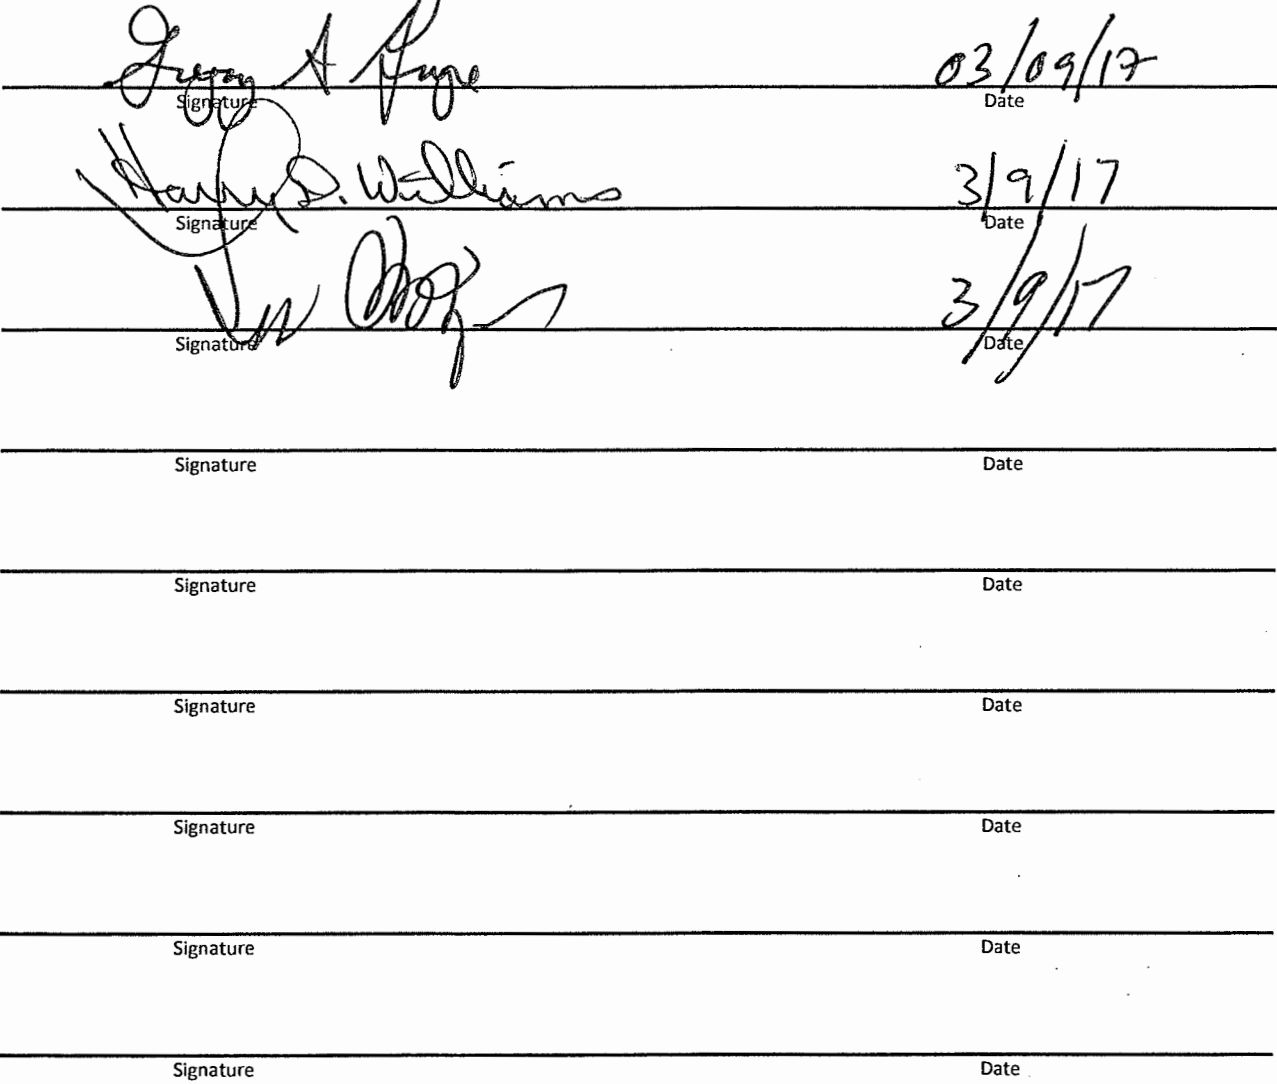 A 03/09/17
Signature Date
Harry D. Williams 3/9/17
Signature Date
3/9/17
Signature Date
Signature Date
Signature Date
Signature Date
Signature Date
Signature Date
Signature Date